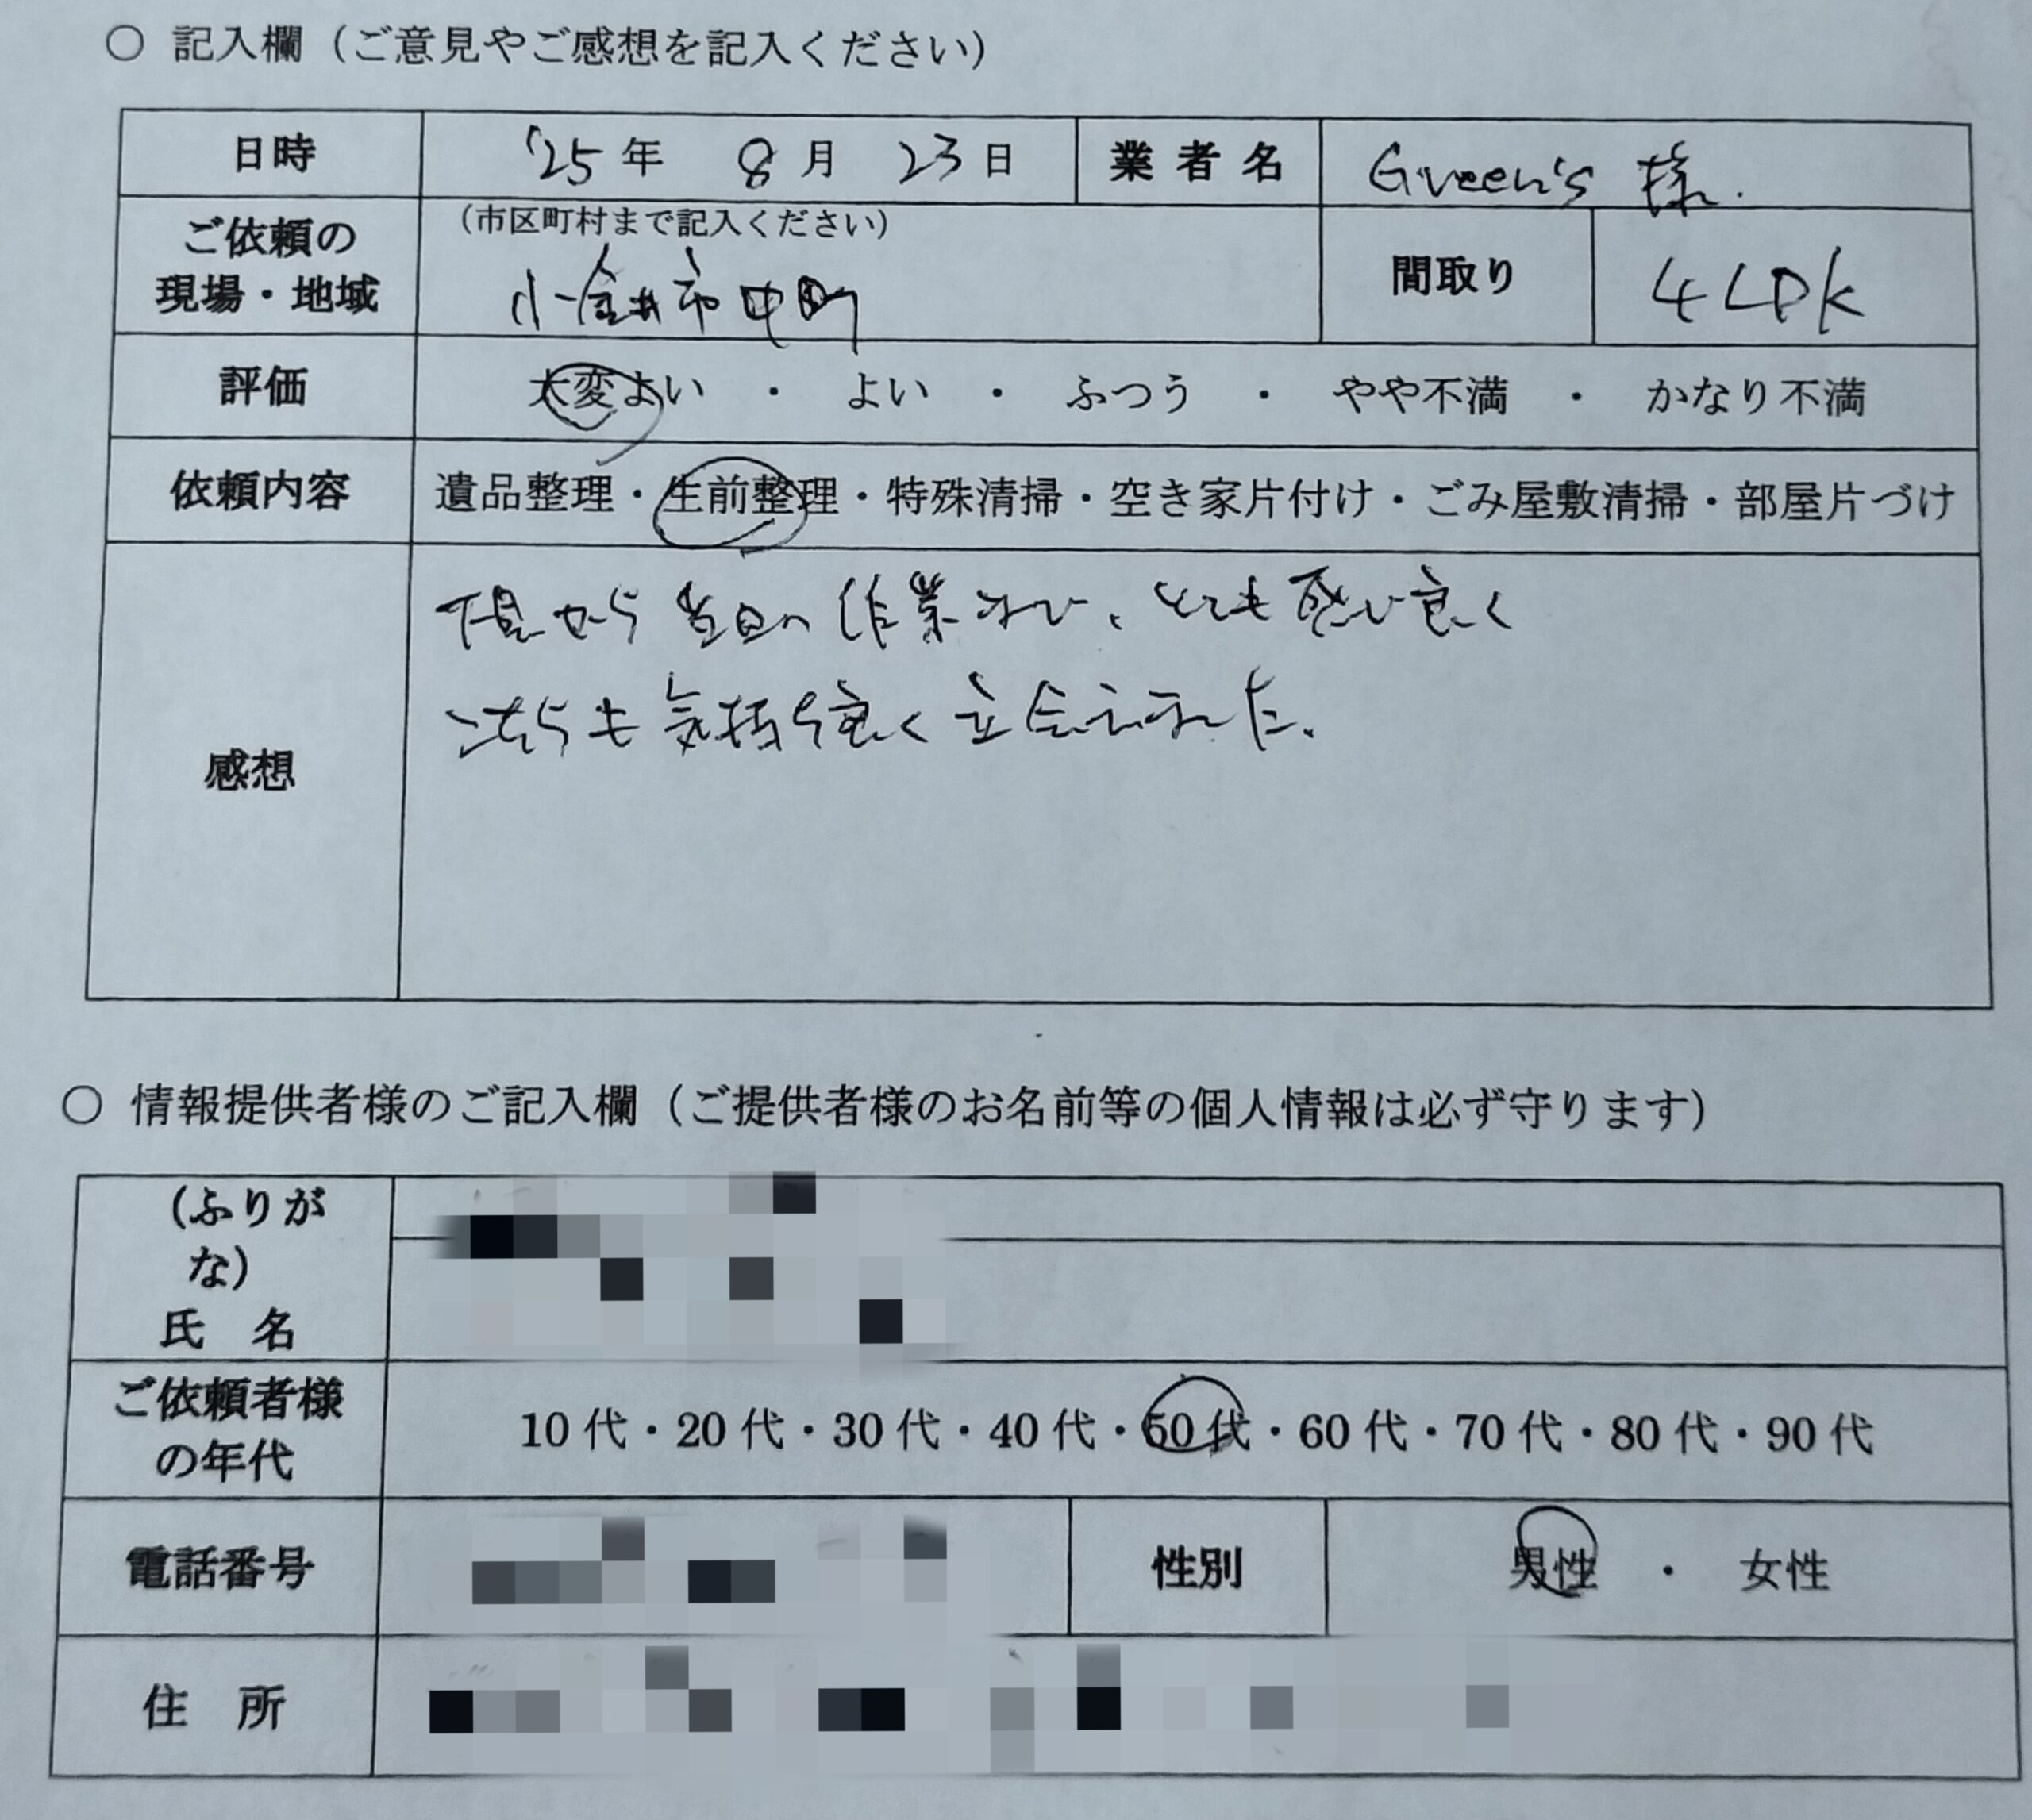 ○ 記入欄（ご意見やご感想を記入ください）
日時 '25年 8月 23日 業者名 Green's 様.
ご依頼の現場・地域 （市区町村まで記入ください） 小金井市中町 間取り 4LDK
評価 大変よい ・ よい ・ ふつう ・ やや不満 ・ かなり不満
依頼内容 遺品整理・生前整理・特殊清掃・空き家片付け・ごみ屋敷清掃・部屋片づけ
感想
下見から当日の作業まで、とても感じ良く
こちらも気持ち良く立会えました。
○ 情報提供者様のご記入欄（ご提供者様のお名前等の個人情報は必ず守ります）
（ふりがな）
氏 名
ご依頼者様の年代 10代・20代・30代・40代・50代・60代・70代・80代・90代
電話番号 性別 男性 ・ 女性
住 所